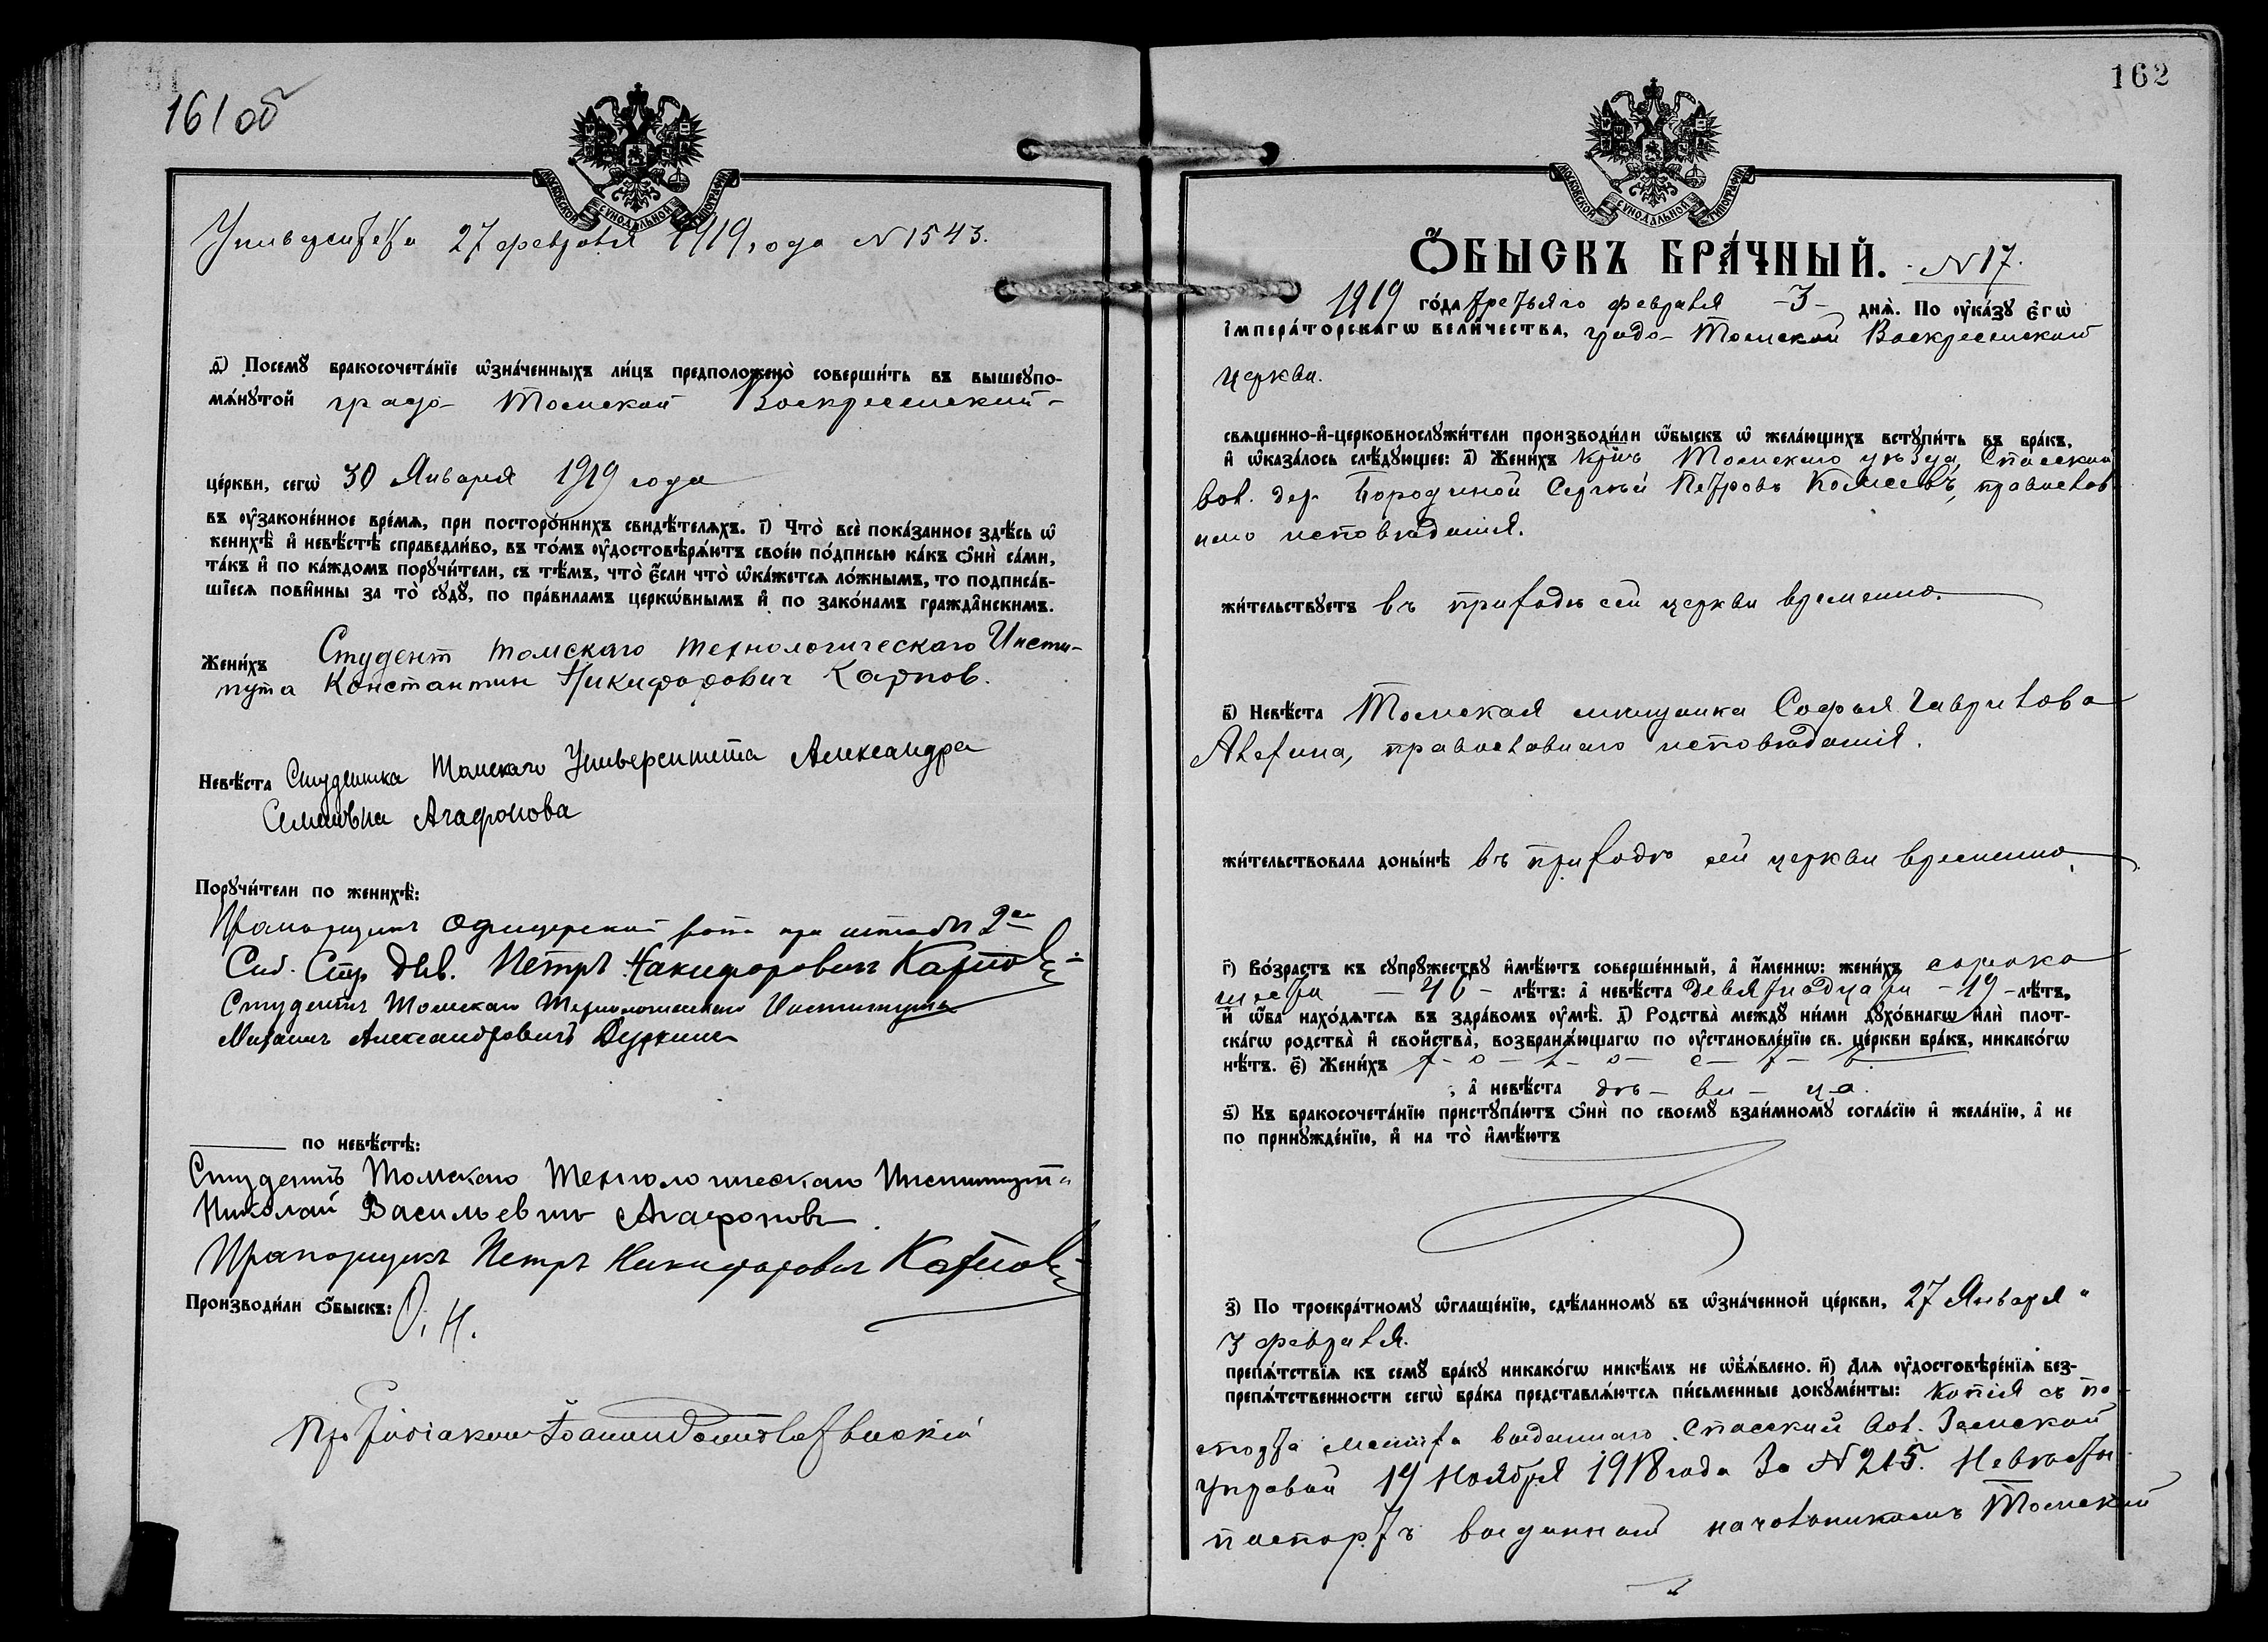 161 об
МОСКОВСКОЙ СУНОДАЛЬНОЙ ТИПОГРАФІИ
Университета 27 февраля 1919 года N 1543.
д҃) Посемꙋ бракосочета́нїе ѡ҆зна́ченныхъ ли́цъ предположено̀ соверши́ть въ вышеꙋпо-
мѧ́нꙋтой градо-Томской Воскресенской
це́ркви, сегѡ̀ 30 Января 1919 года
въ ᲂу҆законе́нное вре́мѧ, при посторо́ннихъ свидѣ́телѧхъ. і҃) Что̀ всѐ пока́занное здѣ́сь ѡ҆
женихѣ̀ и҆ невѣ́стѣ справедли́во, въ то́мъ ᲂу҆достовѣрѧ́ютъ свое́ю по́дписью ка́къ ѻ҆нѝ са́ми,
та́къ и҆ по ка́ждомъ порꙋчи́тели, съ тѣ́мъ, что̀ є҆́сли что̀ ѡ҆ка́жетсѧ ло́жнымъ, то подписа́в-
шїесѧ пови́нны за то̀ сꙋдꙋ̀, по пра́виламъ церкѡ́внымъ и҆ по зако́намъ гражда́нскимъ.
Жени́хъ Студент томскаго технологическаго Инсти-
тута Константин Никифорович Карпов.
Невѣ́ста Студентка Томскаго Университета Александра
Семеновна Агафонова
Порꙋчи́тели по женихѣ̀:
Прапорщикъ офицерской роты при штабѣ 2ой
Сиб. Стр див. Петръ Никифоровичъ Карповъ
Студентъ Томскаго Технологическаго Института
Михаилъ Александровичъ Дуркин
по невѣ́стѣ:
Студентъ Томскаго Технологическаго Института
Николай Васильевичъ Агафоновъ.
Прапорщикъ Петръ Никифоровичъ Карповъ
Производи́ли ѻ҆́быскъ: О. Н.
Протодіаконъ Іоаннъ
162
МОСКОВСКОЙ СУНОДАЛЬНОЙ ТИПОГРАФІИ
Ѻ҆́БЫСКЪ БРА́ЧНЫЙ. N 17.
1919 го́да третьяго февраля -3- днѧ̀. По ᲂу҆ка́зꙋ є҆гѡ̀
і҆мпера́торскагѡ вели́чества, градо-Томской Воскресенской
церкви.
свѧще́нно-и҆-церковнослꙋжи́тели производи́ли ѡ҆́быскъ ѡ҆ жела́ющихъ встꙋпи́ть въ бра́къ,
и҆ ѡ҆каза́лось слѣ́дꙋющее: а҃) Жени́хъ кр-нъ Томскаго уѣзда, Спасской
вол. дер. Бородиной Сергѣй Петровъ православ
наго исповѣданія.
жи́тельствꙋетъ въ приходѣ сей церкви временно.
в҃) Невѣ́ста Томская мѣщанка Софья Гаврилова
Алехина, православнаго исповѣданія.
жи́тельствовала доны́нѣ въ приходѣ сей церкви временно.
г҃) Во́зрастъ къ сꙋпрꙋ́жествꙋ и҆мѣ́ютъ соверше́нный, а҆ и҆́меннѡ: жени́хъ сорока
шести - 46 - лѣ́тъ: а҆ невѣ́ста девятнадцати - 19 - лѣ́тъ,
и҆ ѡ҆́ба нахо́дѧтсѧ въ здра́вомъ ᲂу҆мѣ̀. д҃) Родства̀ междꙋ̀ ни́ми дꙋхо́внагѡ и҆лѝ плот-
ска́гѡ родства̀ и҆ сво́йства̀, возбранѧ́ющагѡ по ᲂу҆становле́нїю св. це́ркви бра́къ, никако́гѡ
нѣ́тъ. є҃) Жени́хъ х-о-л-о-с-т-ъ
; а҆ невѣ́ста дѣ-ви-ца.
ѕ҃) Къ бракосочета́нїю пристꙋпа́ютъ ѻ҆нѝ по своемꙋ̀ взаи́мномꙋ согла́сїю и҆ жела́нїю, а҆ не
по принꙋжде́нїю, и҆ на то̀ и҆мѣ́ютъ
з҃) По троекра́тномꙋ ѡ҆глаше́нїю, сдѣ́ланномꙋ въ ѡ҆зна́ченной це́ркви, 27 Января
3 февраля.
препѧ́тствїѧ къ семꙋ̀ бра́кꙋ никако́гѡ никѣ́мъ не ѡ҆б̾ѧ́влено. и҃) Длѧ ᲂу҆достовѣре́нїѧ без-
препѧ́тственности сегѡ̀ бра́ка представлѧ́ютсѧ пи́сьменные докꙋме́нты: Копія съ па-
спорта выданнаго Спасской вол. Земской
Управой 19 Ноября 1918 года за N 215. Невѣсты
паспортъ выданный начальникомъ Томской